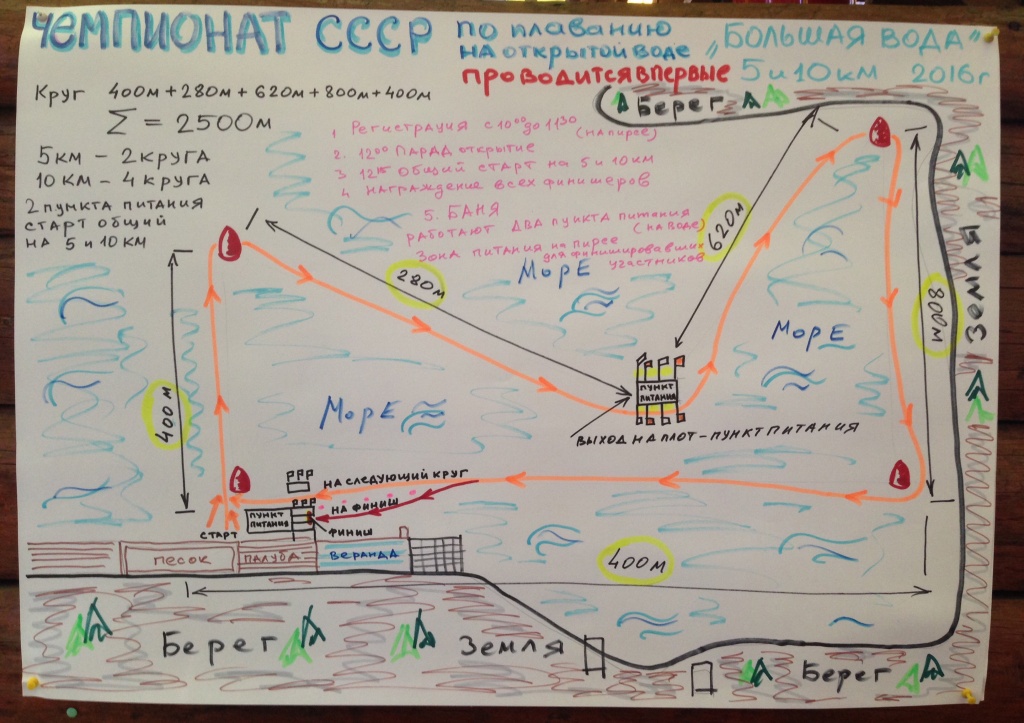 ЧЕМПИОНАТ СССР ПО ПЛАВАНИЮ
НА ОТКРЫТОЙ ВОДЕ „БОЛЬШАЯ ВОДА”
ПРОВОДИТСЯ ВПЕРВЫЕ 5 и 10 КМ 2016г
Круг 400м + 280м + 620м + 800м + 400м
Σ = 2500м
5КМ – 2 КРУГА
10 КМ – 4 КРУГА
2 ПУНКТА ПИТАНИЯ
СТАРТ ОБЩИЙ
НА 5 и 10 КМ
1 Регистрация с 10⁰⁰ до 11³⁰ (на пирсе)
2. 12⁰⁰ ПАРАД ОТКРЫТИЕ
3 12³⁰ ОБЩИЙ СТАРТ НА 5 и 10 КМ
4 НАГРАЖДЕНИЕ ВСЕХ ФИНИШЕРОВ
5. БАНЯ
РАБОТАЮТ ДВА ПУНКТА ПИТАНИЯ
(НА ВОДЕ)
ЗОНА ПИТАНИЯ НА ПИРСЕ
ДЛЯ ФИНИШИРОВАВШИХ
УЧАСТНИКОВ
Берег
620м
280м
МОРЕ
МОРЕ
800м
ЗЕМЛЯ
400м
МОРЕ
ПУНКТ
ПИТАНИЯ
ВЫХОД НА ПЛОТ – ПУНКТ ПИТАНИЯ
НА СЛЕДУЮЩИЙ КРУГ
НА ФИНИШ
ПУНКТ
ПИТАНИЯ
ФИНИШ
СТАРТ
ПЕСОК
ПАЛУБА
ВЕРАНДА
400м
Берег
Земля
Берег